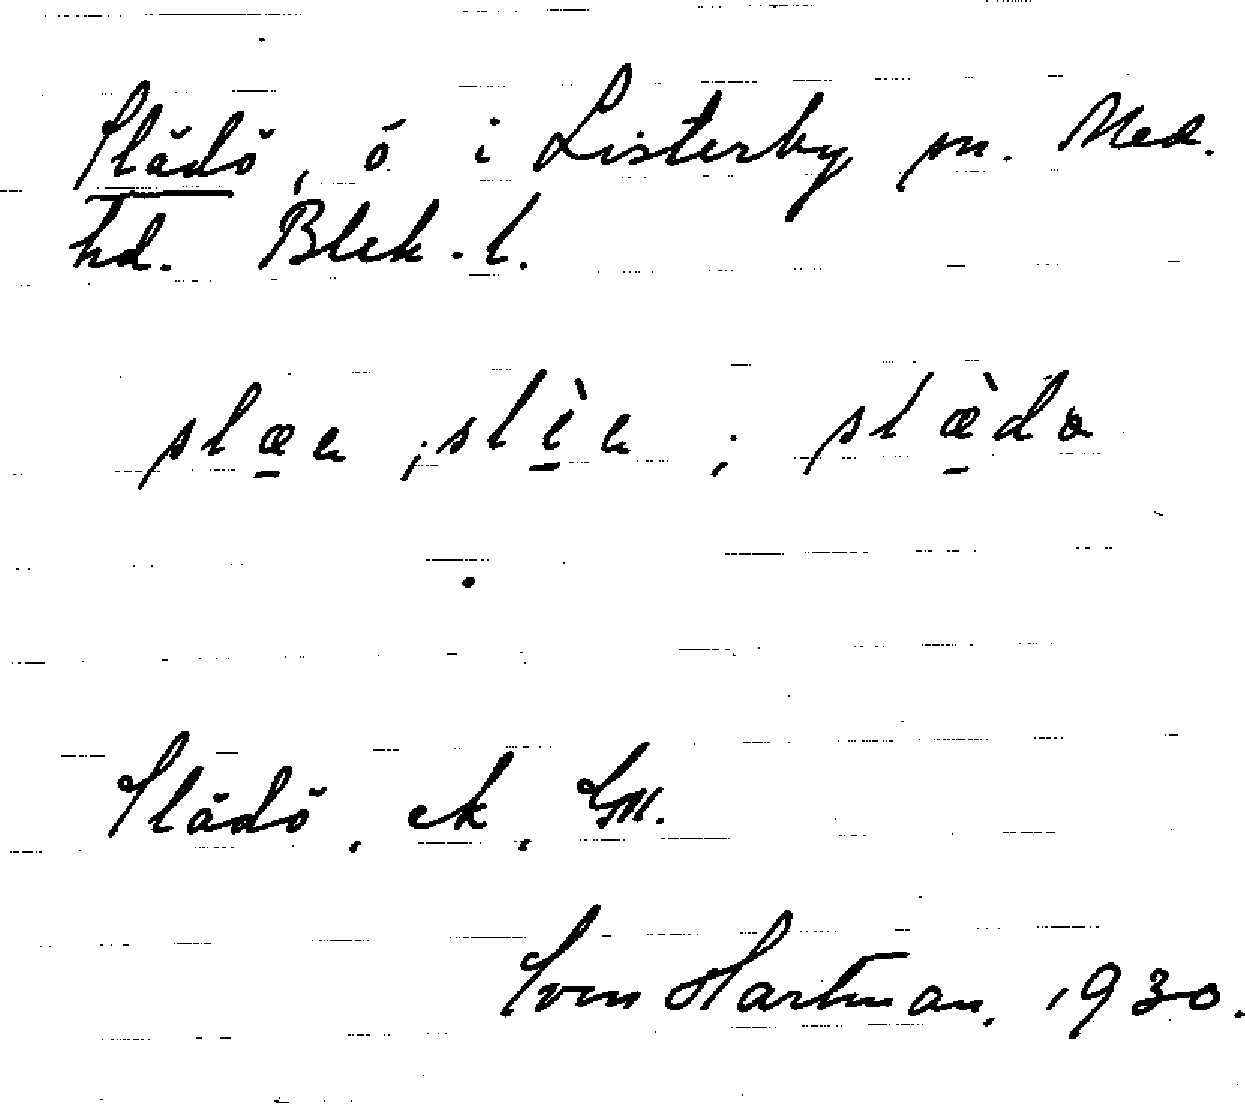 Slädö, ö i Listerby sn. Med.
hd. Blek. l.
slæn ; slèn ; slæ̀dø
Slädö, ek, GK.
Sven Hartman. 1930.